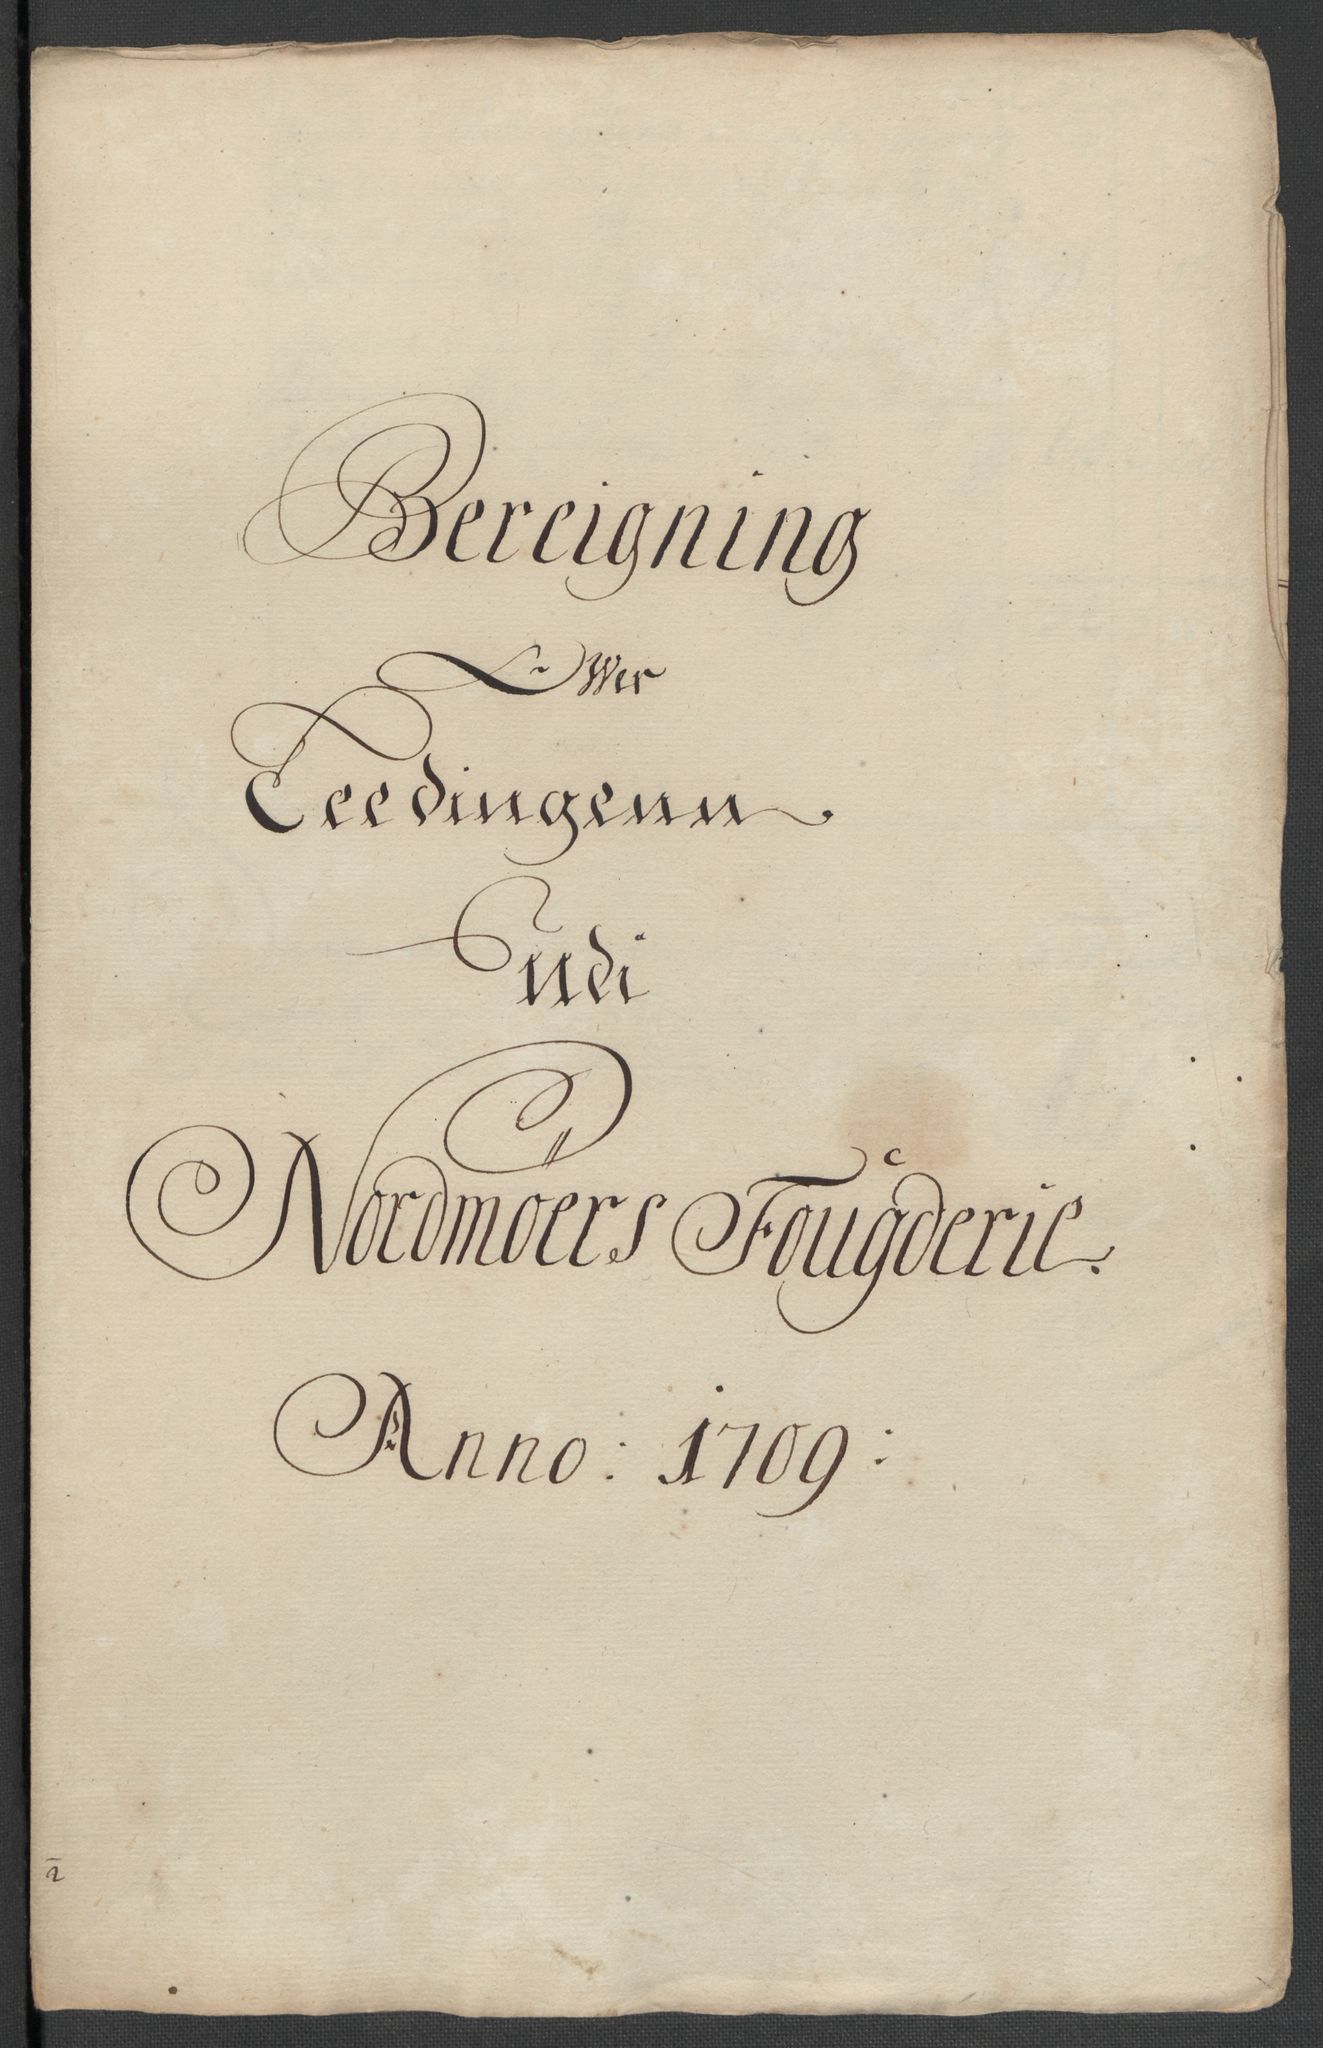 Bereigning
Ower
Teedingenn
udi
Nordmøers Fougderie.
Anno: 1709: